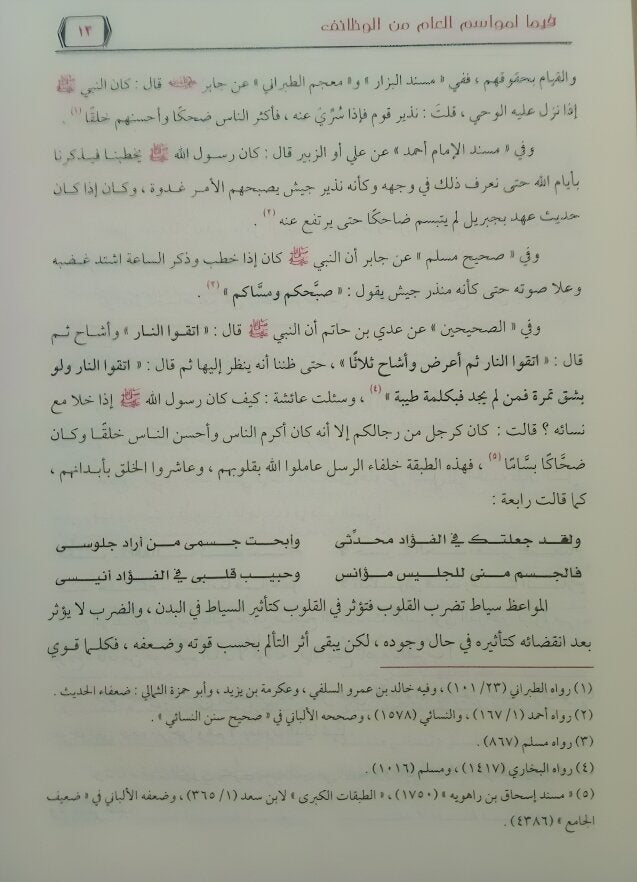 فيما لمواسم العام من الوظائف
١٣
والقيام بحقوقهم ، ففي « مسند البزار » و« معجم الطبراني » عن جابر رضي الله عنه قال : كان النبي ﷺ
إذا نزل عليه الوحي ، قلتَ : نذير قوم فإذا سُرِّيَ عنه ، فأكثر الناس ضحكًا وأحسنهم خلقًا (١) .
وفي « مسند الإمام أحمد » عن علي أو الزبير قال : كان رسول الله ﷺ يخطبنا فيذكرنا
بأيام الله حتى نعرف ذلك في وجهه وكأنه نذير جيش يصبحهم الأمر غدوة ، وكان إذا كان
حديث عهد بجبريل لم يتبسم ضاحكًا حتى يرتفع عنه (٢) .
وفي « صحيح مسلم » عن جابر أن النبي ﷺ كان إذا خطب وذكر الساعة اشتد غضبه
وعلا صوته حتى كأنه منذر جيش يقول : « صبَّحكم ومسَّاكم » (٣) .
وفي « الصحيحين » عن عدي بن حاتم أن النبي ﷺ قال : « اتقوا النار » وأشاح ثم
قال : « اتقوا النار ثم أعرض وأشاح ثلاثًا » ، حتى ظننا أنه ينظر إليها ثم قال : « اتقوا النار ولو
بشق تمرة فمن لم يجد فبكلمة طيبة » (٤) ، وسئلت عائشة : كيف كان رسول الله ﷺ إذا خلا مع
نسائه ؟ قالت : كان كرجل من رجالكم إلا أنه كان أكرم الناس وأحسن الناس خلقًا وكان
ضحَّاكًا بسَّامًا (٥) ، فهذه الطبقة خلفاء الرسل عاملوا الله بقلوبهم ، وعاشروا الخلق بأبدانهم ،
كما قالت رابعة :
ولقد جعلتك في الفؤاد محدِّثى وأبحت جسمى من أراد جلوسى
فالجسم منى للجليس مؤانس وحبيب قلبى في الفؤاد أنيسى
المواعظ سياط تضرب القلوب فتؤثر في القلوب كتأثير السياط في البدن ، والضرب لا يؤثر
بعد انقضائه كتأثيره في حال وجوده ، لكن يبقى أثر التألم بحسب قوته وضعفه ، فكلما قوي
(١) رواه الطبراني (٢٣/ ١٠١) ، وفيه خالد بن عمرو السلفي ، وعكرمة بن يزيد ، وأبو حمزة الثمالي : ضعفاء الحديث .
(٢) رواه أحمد (١/ ١٦٧) ، والنسائي (١٥٧٨) ، وصححه الألباني في « صحيح سنن النسائي » .
(٣) رواه مسلم (٨٦٧) .
(٤) رواه البخاري (١٤١٧) ، ومسلم (١٠١٦) .
(٥) « مسند إسحاق بن راهويه » (١٧٥٠) ، « الطبقات الكبرى » لابن سعد (١/ ٣٦٥) ، وضعفه الألباني في « ضعيف
الجامع » (٤٣٨٦) .